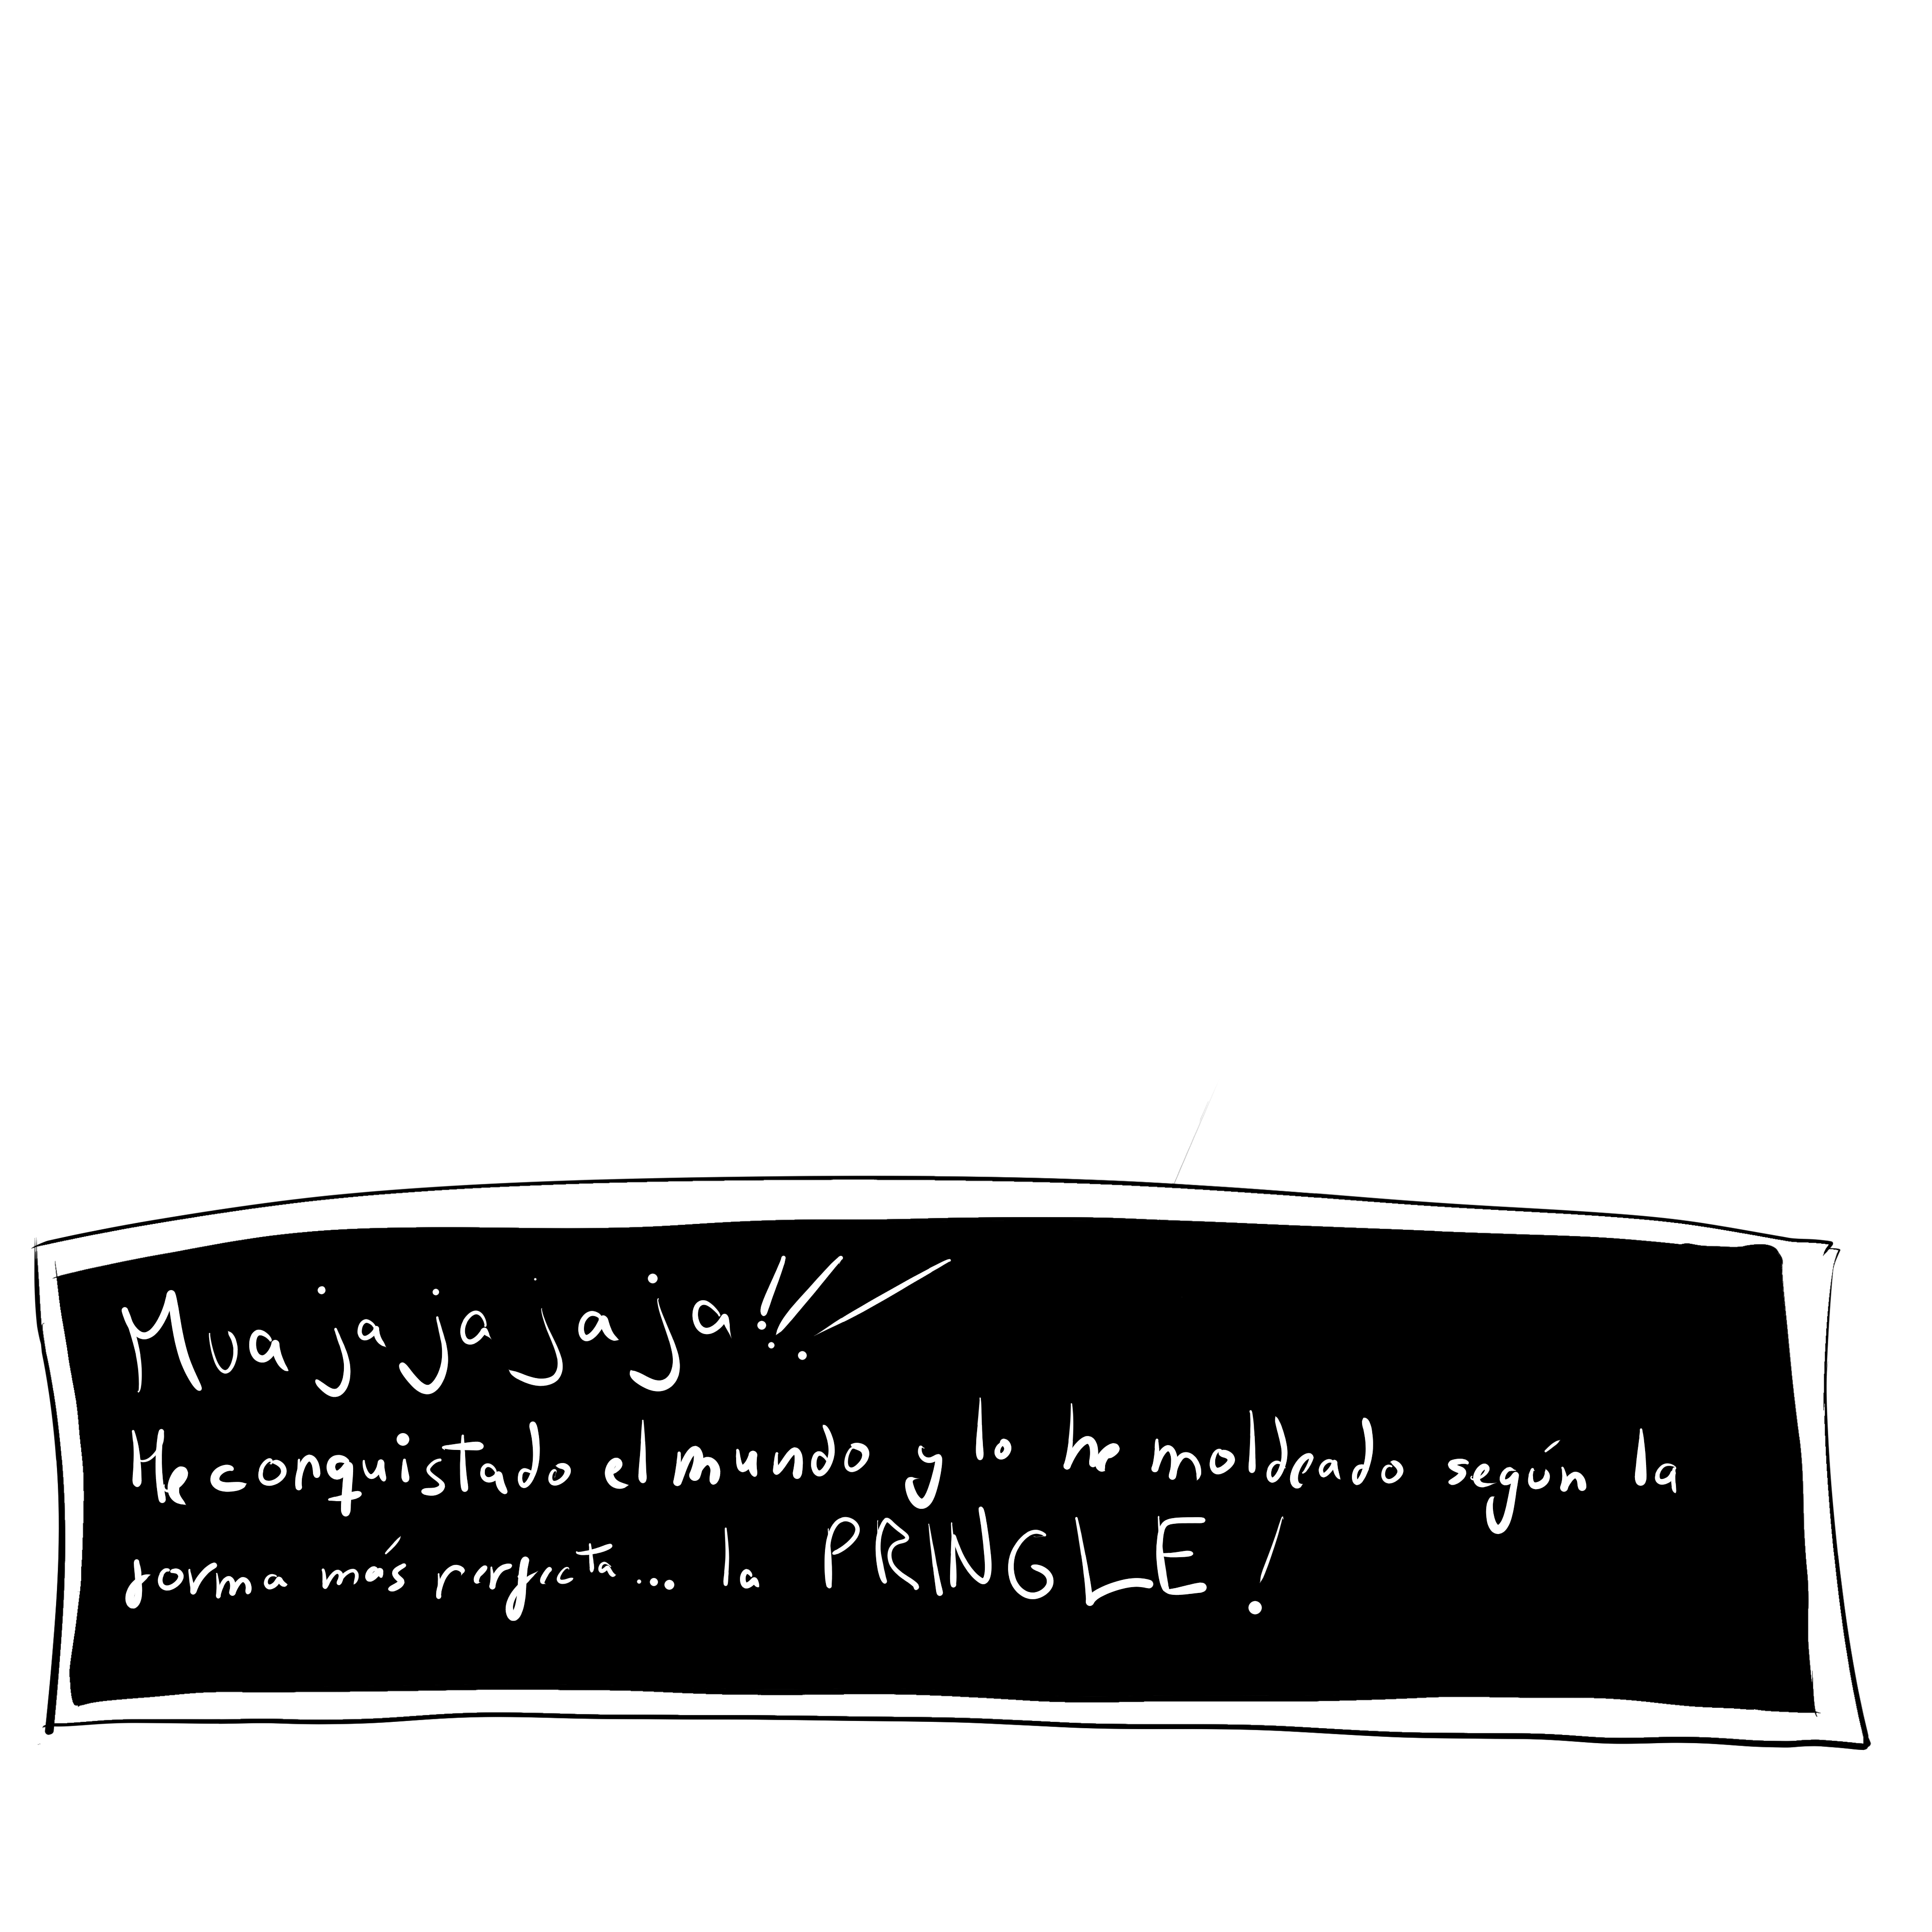 Mua jajajaja!!!
He conquistado el mundo y lo he moldeado según la
forma más perfecta... la PRINGLE!